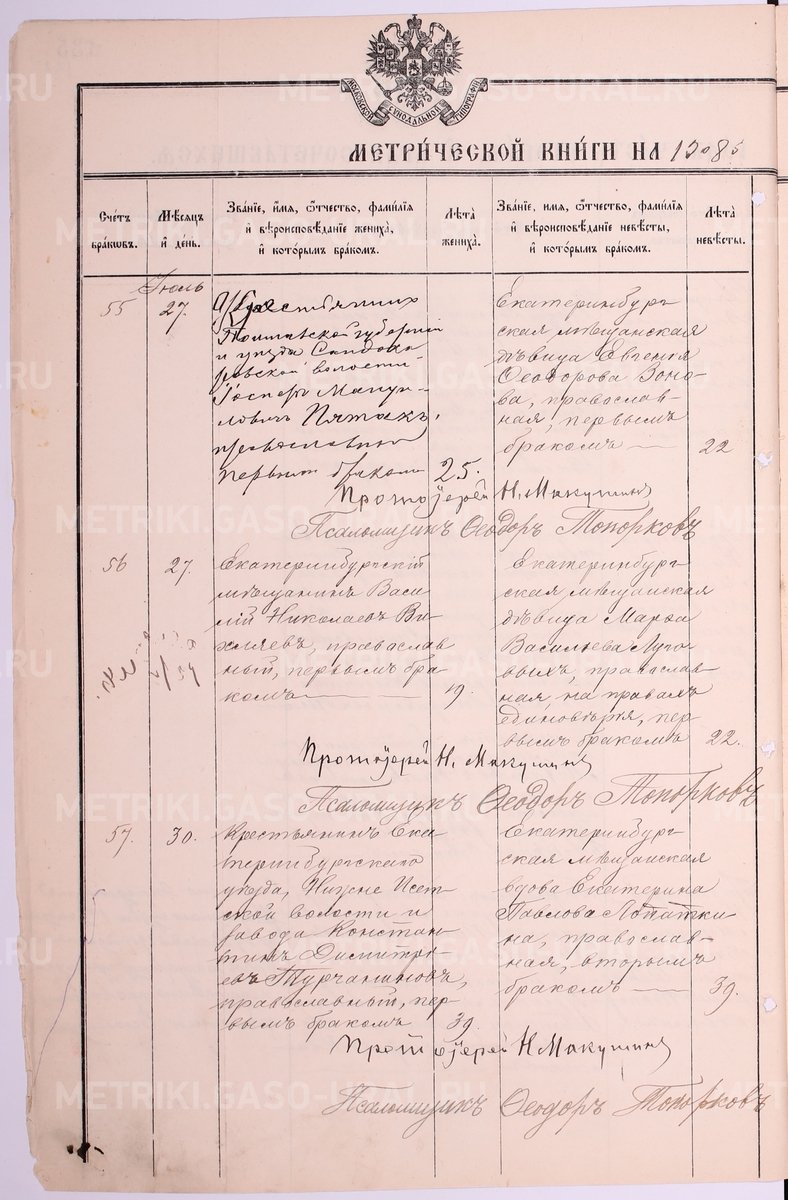 МОСКОВСКОЙ СѴНОДАЛЬНОЙ ТИПОГРАФІИ
МЕТРИ́ЧЕСКОЙ КНИ́ГИ НА 1908 г
Сче́тъ бра́кѡвъ.
Мѣ́сяцъ и҆ де́нь.
Зва́нїе, и҆́мя, ѻ҆́тчество, фами́лїя и҆ вѣроисповѣ́данїе жениха̀, и҆ кото́рымъ бра́комъ.
Лѣ́та жениха̀.
Зва́нїе, и҆́мя, ѻ҆́тчество, фами́лїя и҆ вѣроисповѣ́данїе невѣ́сты, и҆ кото́рымъ бра́комъ.
Лѣ́та невѣ́сты.
Іюль
55
27.
Крестьянинъ
губерніи
и уѣзда
волости
ловичъ Пятакъ,
православный
первымъ бракомъ
25.
Екатеринбург-
ская мѣщанская
дѣвица Евгенія
Ѳеодорова Зоно-
ва, православ-
ная, первымъ
бракомъ —
22
Протоіерей Н. Макушинъ
Псаломщикъ Ѳеодоръ Топорковъ
56
27.
Екатеринбургскій
мѣщанинъ Васи-
лій Николаевъ Ви-
хляевъ, православ
ный, первымъ бра-
комъ —
19.
Екатеринбург-
ская мѣщанская
дѣвица Марѳа
Васильева Луго-
выхъ, православ-
ная, на правахъ
единовѣрія, пер-
вымъ бракомъ
22.
Протоіерей Н. Макушинъ
Псаломщикъ Ѳеодоръ Топорковъ
57.
30.
Крестьянинъ Ека-
теринбургскаго
уѣзда, Нижне Исет-
ской волости и
завода Констан-
тинъ Димитрі-
евъ Турчаниновъ,
православный, пер-
вымъ бракомъ
39.
Екатеринбург-
ская мѣщанская
вдова Екатерина
Павлова Лопатки-
на, православ-
ная, вторымъ
бракомъ —
39.
Протоіерей Н Макушинъ
Псаломщикъ Ѳеодоръ Топорковъ
METRIKI.GASO-URAL.RU